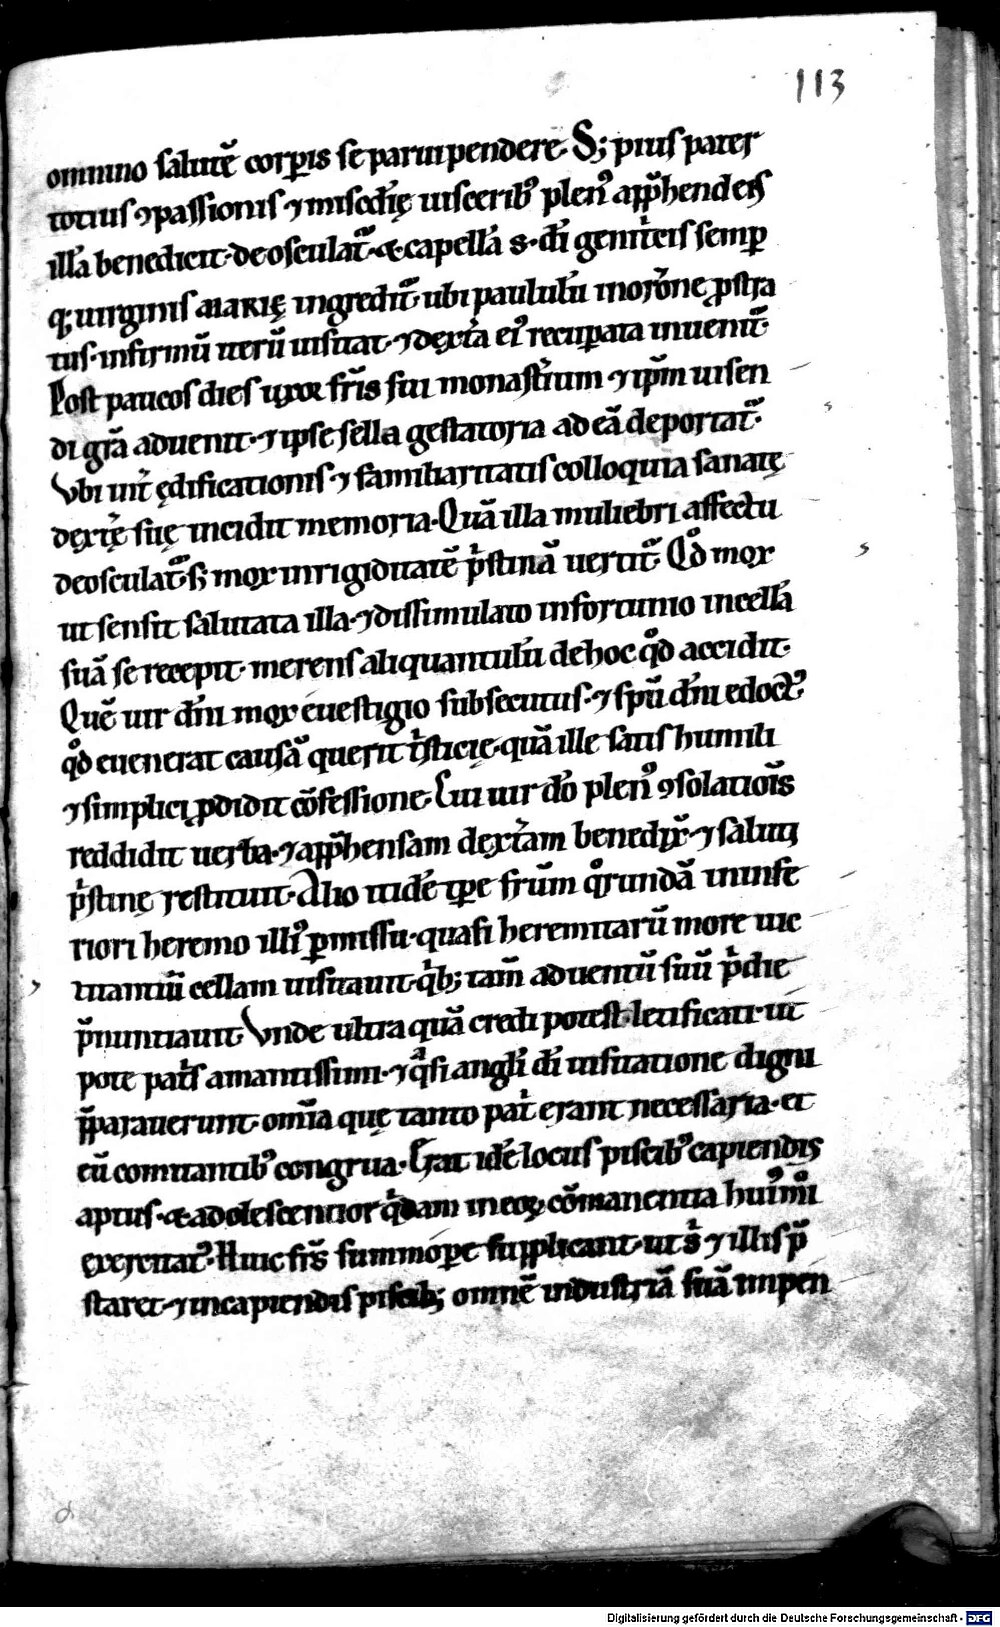 113
omnino salutē corꝑis se paruipendere. S; pius pater
totius ꝯpassionis ⁊ misc̄dię uiscerib᷒ plen᷒ app̄hendens
illā benedicit. deosculat᷑. & capellā s. dī genit͛cis semꝑ
q; uirginis MARIĘ ingredit᷑. ubi paululū in or̄one ꝓstra
tus. infirmū uerū uisitat. ⁊ dext͛a ei᷒ recuꝑata inuenit᷑.
Post paucos dies uxor fr̄is sui monast͛ium ⁊ ip̄m uisen
di gr̄a aduenit. ⁊ ipse sella gestatoria ad eā deportat᷑.
Vbi int͛ ędificationis ⁊ familiaritatis colloquia sanatę
dext͛ę suę incidit memoria. Quā illa muliebri affectu
deosculat᷑. s; mox in rigiditatē p͛stinā uertit᷑. Qd̊ mox
ut sensit salutata illa. ⁊ dissimulato infortunio in cellā
suā se recepit. merens aliquantulū de hoc qd̊ accidit.
Quē uir dn̄i mox e uestigio subsecutus. ⁊ sp̄u dn̄i edoct᷒
qd̊ euenerat causā querit t͛sticię. quā ille satis humili
⁊ simplici ꝓdidit cōfessione. Cui uir dō plen᷒ ꝯsolatiōis
reddidit uerba. ⁊ app̄hensam dext͛am benedix̄. ⁊ saluti
p͛stinę restituit. Alio itidē tp̄e fr̄um q̊rundā in infe
riori heremo illi᷒ ꝑmissu. quasi heremitarū more uic
titantiū cellam uisitauit. q͛b; tam̄ aduentū suū p͛die
p̄nuntiauit. Vnde ultra quā credi potest letificati ut
pote pat͛s amantissimi. ⁊ qͣsi angl̄i dī uisitatione digni
p̄parauerunt om̄ia quę tanto pat͛ erant necessaria. et
cū comitantib᷒ congrua. Erat idē locus piscib᷒ capiendis
aptus. & adolescentior q͛dam in eoꝝ cōmanentia hui᷒mōi
exercitat᷒. Huic fr̄s summoꝑe supplicant. ut s͛ ⁊ illis p̄
staret. ⁊ in capiendis piscib; omnē industriā suā impen
Digitalisierung gefördert durch die Deutsche Forschungsgemeinschaft - DFG